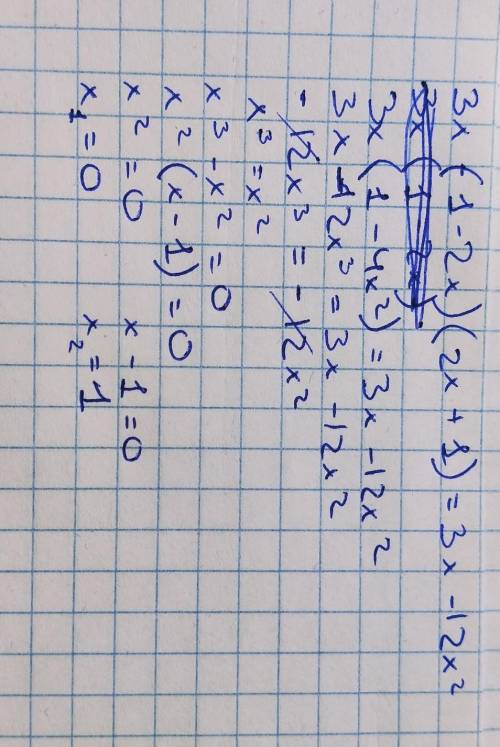 3x (1-2x)(2x+1)=3x-12x²
3x(1-4x²)=3x-12x²
3x-12x³=3x-12x²
-12x³=-12x²
x³=x²
x³-x²=0
x²(x-1)=0
x²=0 x-1=0
x₁=0 x₂=1